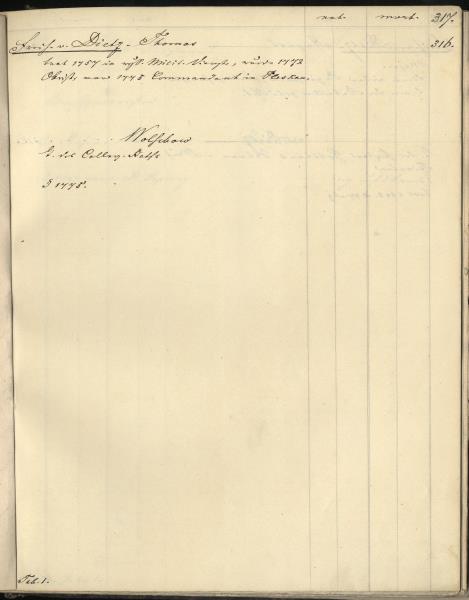 nat. mort. 317.
Frieh. v. Dietz - Thomas 316.
trat 1757 in russ. Milit. Dienste, wurde 1772
Obrist, war 1775 Commandant in Pleskau.
Wolschow
T. des Colleg. Raths
§ 1775.
Tab. 1.